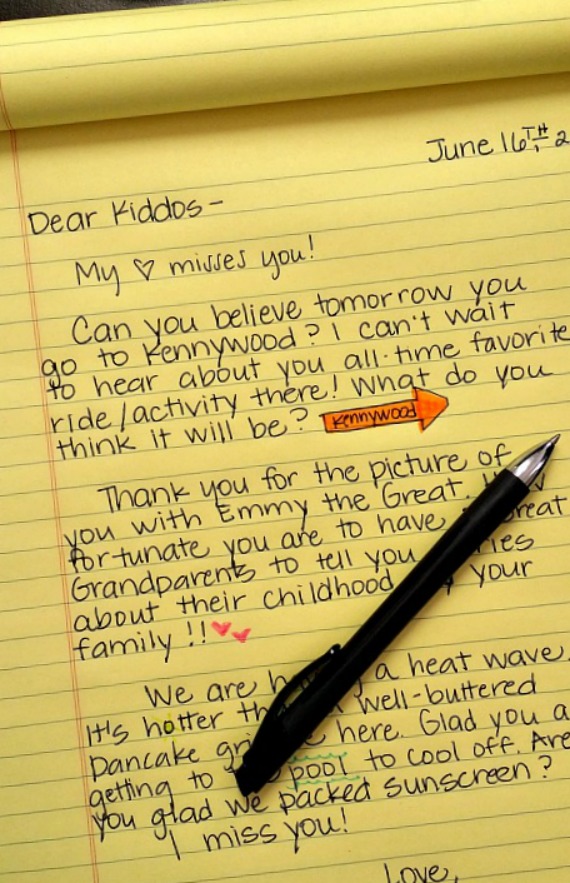 June 16TH, 2
Dear Kiddos-
My ♡ misses you!
Can you believe tomorrow you
go to Kennywood? I can't wait
to hear about you all-time favorite
ride/activity there! What do you
think it will be? Kennywood
Thank you for the picture of
you with Emmy the Great.
fortunate you are to have
Grandparents to tell you
about their childhood your
family!!
We are a heat wave.
It's hotter well-buttered
pancake here. Glad you
getting to pool to cool off. Are
you glad we packed sunscreen?
I miss you!
Love,